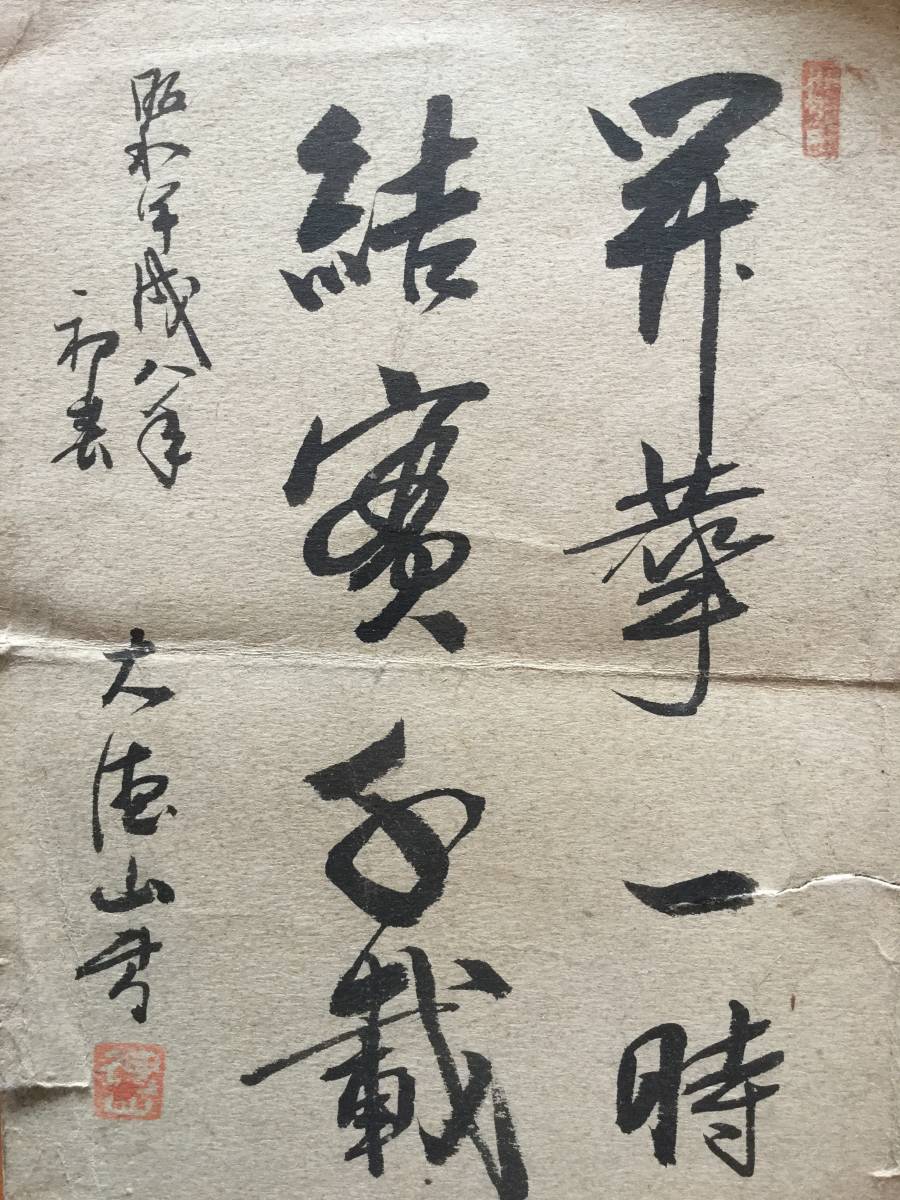 開華一時
結實千載
昭和 八年
初春
大徳山書
徳山